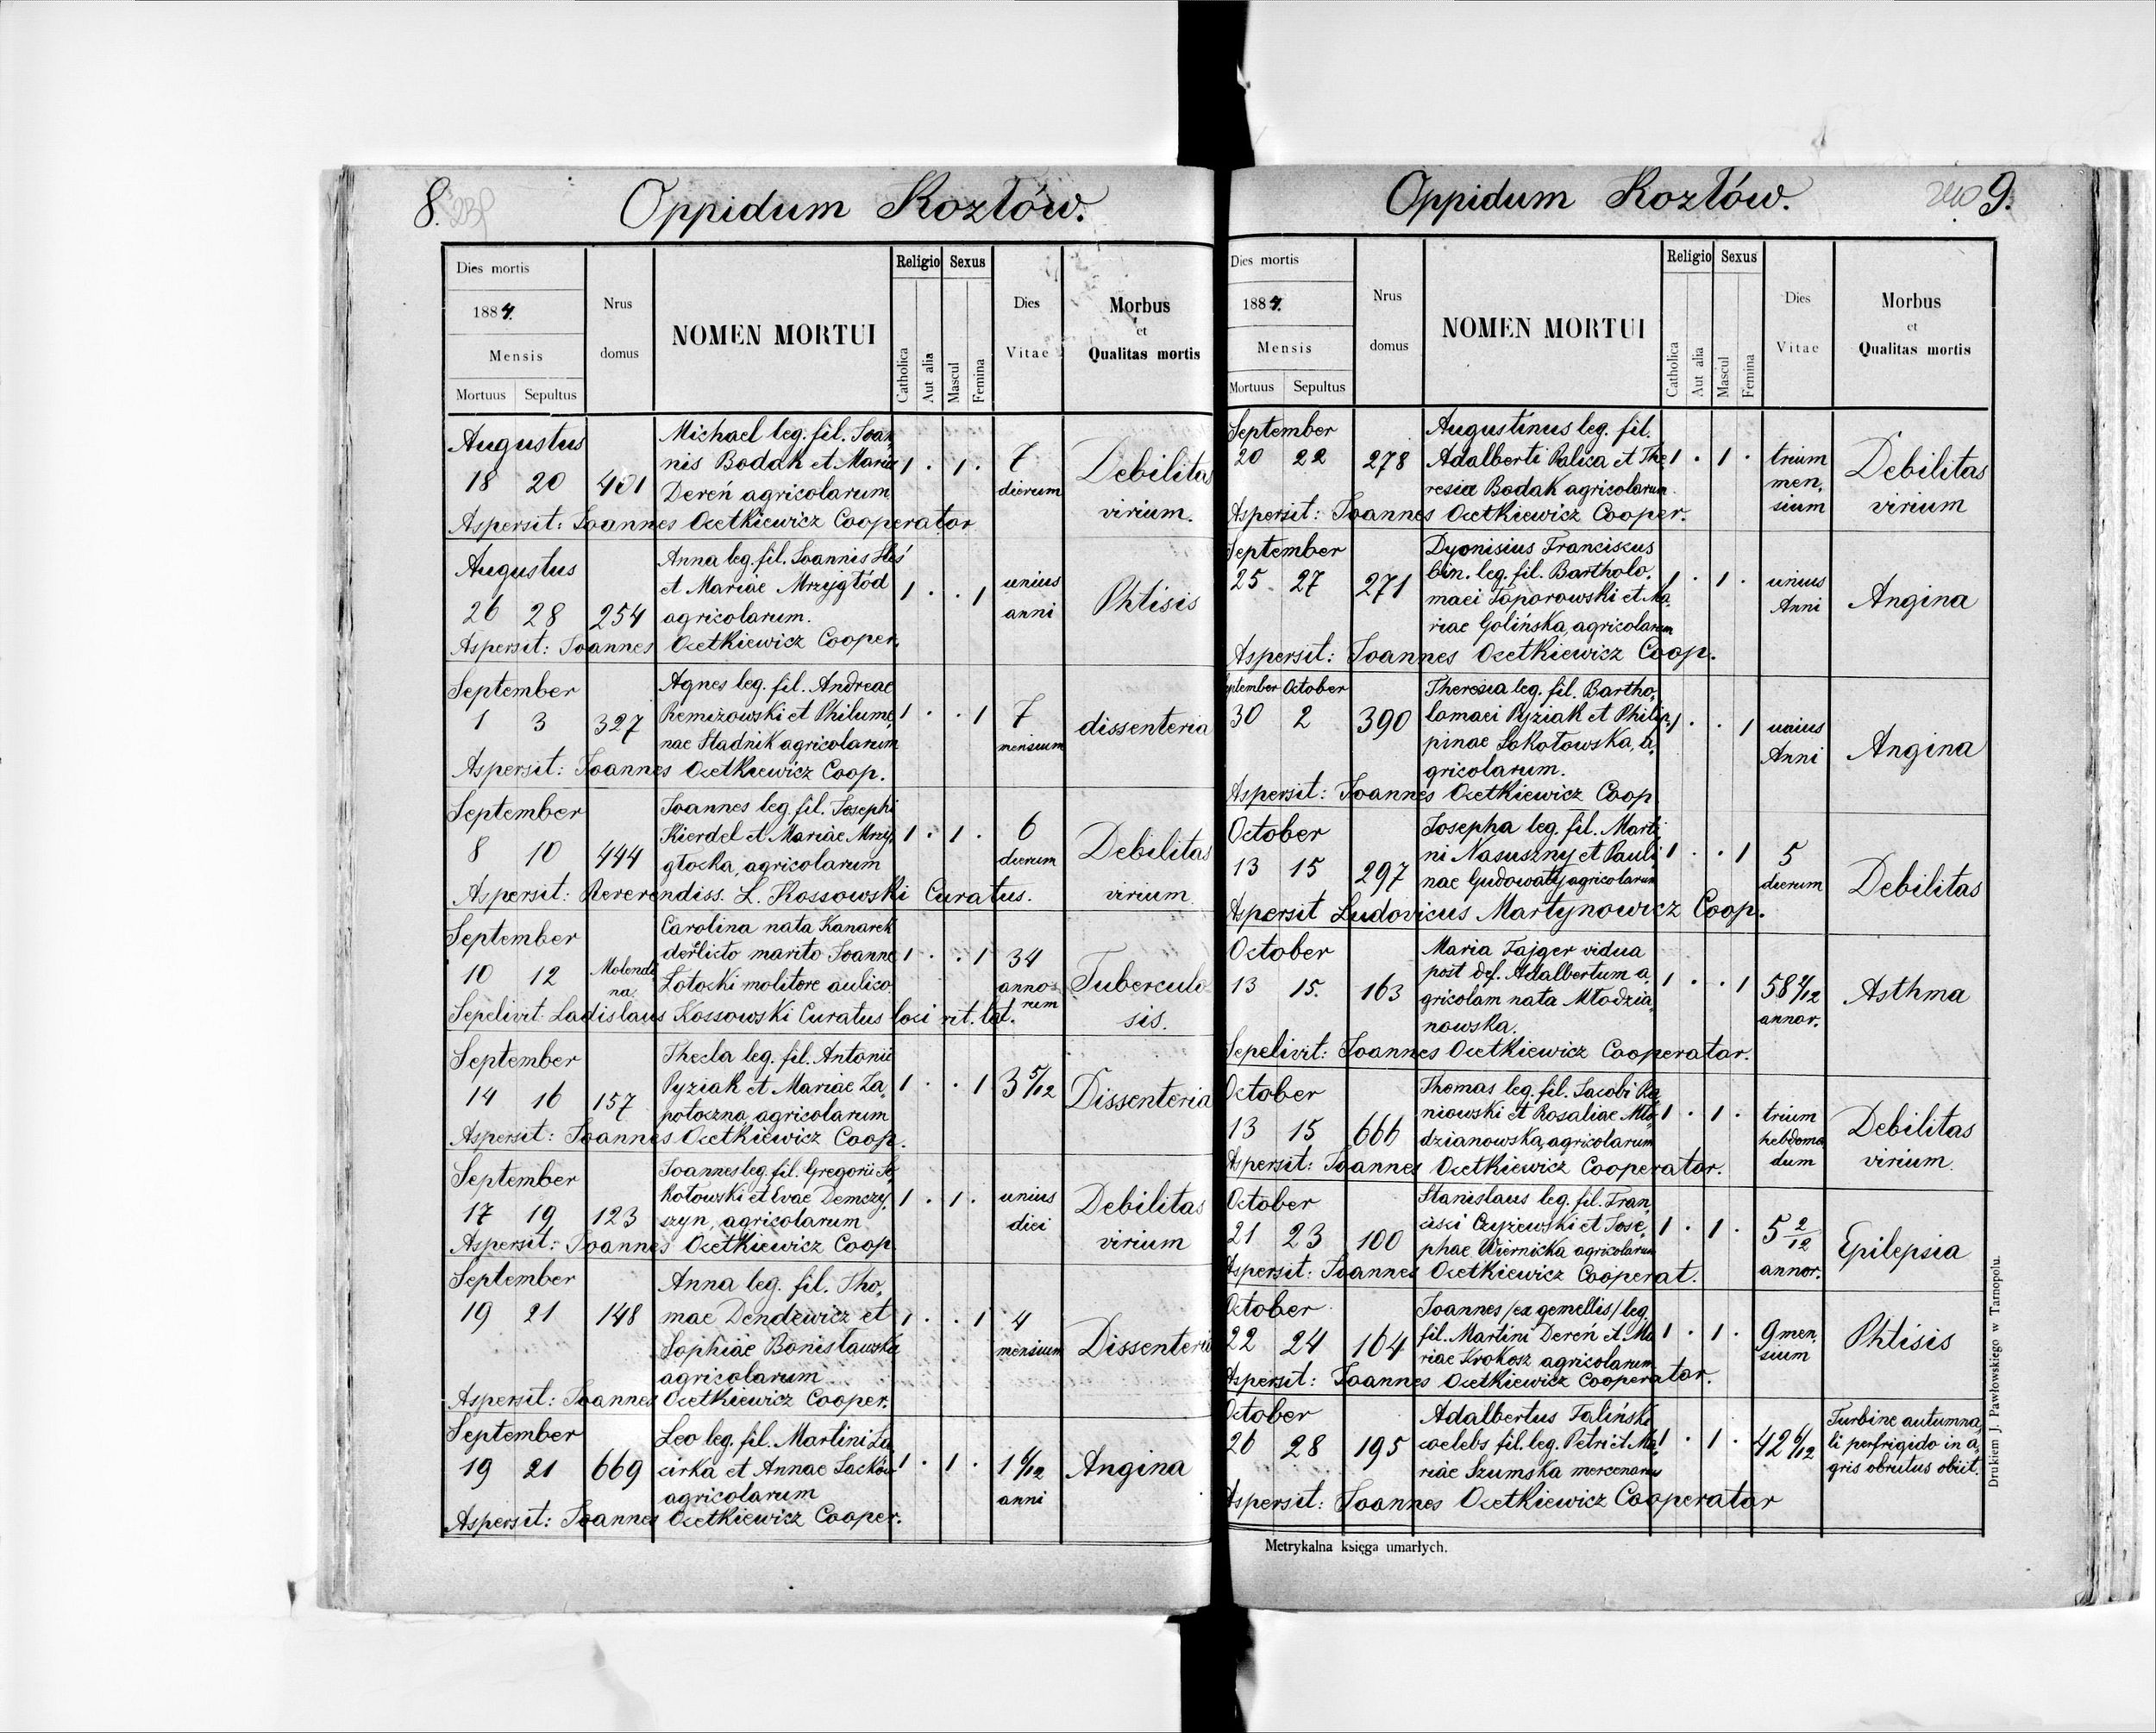 8.
Oppidum Kozłów.
Dies mortis
1884.
Mensis
Mortuus Sepultus
Nrus
domus
NOMEN MORTUI
Religio
Catholica
Aut alia
Sexus
Mascul
Femina
Dies
Vitae
Morbus
et
Qualitas mortis
Augustus
18 20 401
Michael leg. fil. Joan
nis Bodak et Maria
Dereń agricolarum
1 . 1 .
dierum
Debilitas
virium.
Aspersit: Joannes Ocetkiewicz Cooperator.
Augustus
26 28 254
Anna leg. fil. Joannis
et Mariae Mrzygłód
agricolarum.
1 . . 1
unius
anni
Phtisis
Aspersit: Joannes Ocetkiewicz Cooper.
September
1 3 327
Agnes leg. fil. Andreae
Remizowski et Philume,
nae Stadnik agricolarum
1 . . 1
7
mensium
dissenteria
Aspersit: Joannes Ocetkiewicz Coop.
September
8 10 444
Joannes leg. fil. Josephi
Kierdel et Mariae Mrzy,
głocka, agricolarum
1 . 1 .
6
dierum
Debilitas
virium.
Aspersit: Reverendiss. L. Kossowski Curatus.
September
10 12
Molendi
na
Carolina nata Kanarek
derelicto marito Joanne
Łotocki molitore aulico
1 . . 1
34
anno
rum
Tuberculo
sis.
Sepelivit Ladislaus Kossowski Curatus loci rit. lat.
September
14 16 157
Thecla leg. fil. Antonii
Pyziak et Mariae Za,
potoczna, agricolarum
1 . . 1
3 5/12
Dissenteria
Aspersit: Joannes Ocetkiewicz Coop.
September
17 19 123
Joannes leg. fil. Gregorii So
kołowski et Evae Demczy,
szyn, agricolarum
1 . 1 .
unius
diei
Debilitas
virium
Aspersit: Joannes Ocetkiewicz Coop
September
19 21 148
Anna leg. fil. Tho,
mae Dendewicz et
Sophiae Bonisławska
agricolarum
1 . . 1
4
mensium
Dissenteria
Aspersit: Joannes Ocetkiewicz Cooper.
September
19 21 669
Leo leg. fil. Martini
cirka et Annae Jacków
agricolarum
1 . 1 .
1 6/12
anni
Angina
Aspersit: Joannes Ocetkiewicz Cooper.
240 9.
Oppidum Kozłów.
Dies mortis
1884.
Mensis
Mortuus Sepultus
Nrus
domus
NOMEN MORTUI
Religio
Catholica
Aut alia
Sexus
Mascul
Femina
Dies
Vitae
Morbus
et
Qualitas mortis
September
20 22 278
Augustinus leg. fil.
Adalberti Palica et The
resia Bodak agricolarum.
1 . 1 .
trium
men,
sium
Debilitas
virium
Aspersit: Joannes Ocetkiewicz Cooper.
September
25 27 271
Dyonisius Franciscus
bin. leg. fil. Bartholo,
maei Toporowski et Ma,
riae Golińska, agricolarum
1 . 1 .
unius
Anni
Angina
Aspersit: Joannes Ocetkiewicz Coop.
September October
30 2 390
Theresia leg. fil. Bartho,
lomaei Pyziak et Philip,
pinae Sokołowska, a,
gricolarum.
1 . . 1
unius
Anni
Angina
Aspersit: Joannes Ocetkiewicz Coop
October
13 15 297
Josepha leg. fil. Marti
ni Nasuszny et Pauli,
nae Gudowaty agricolarum
1 . . 1
5
dierum
Debilitas
Aspersit Ludovicus Martynowicz Coop.
October
13 15. 163
Maria Fajger vidua
post def. Adalbertum a,
gricolam nata Młodzia,
nowska.
1 . . 1
58 2/12
annor.
Asthma
Sepelivit: Joannes Ocetkiewicz Cooperator.
October
13 15 666
Thomas leg. fil. Jacobi
niowski et Rosaliae Mło,
dzianowska, agricolarum
1 . 1 .
trium
hebdoma
dum
Debilitas
virium.
Aspersit: Joannes Ocetkiewicz Cooperator.
October
21 23 100
Stanislaus leg. fil. Fran,
cisci Czyżewski et Jose,
phae Wiernicka agricolarum
1 . 1 .
5 2/12
annor.
Epilepsia
Aspersit: Joannes Ocetkiewicz Cooperat.
October
22 24 164
Joannes /ex gemellis/ leg.
fil. Martini Dereń et Ma
riae Krokosz agricolarum
1 . 1 .
9 men,
sium
Phtisis
Aspersit: Joannes Ocetkiewicz Cooperator.
October
26 28 195
Adalbertus Faliński
coelebs fil. leg. Petri et Ma,
riae Szumska mercenarius
1 . 1 .
42 6/12
Turbine autumna,
li perfrigido in a,
gris obrutus obiit.
Aspersit: Joannes Ocetkiewicz Cooperator
Metrykalna księga umarłych.
Drukiem J. Pawłowskiego w Tarnopolu.